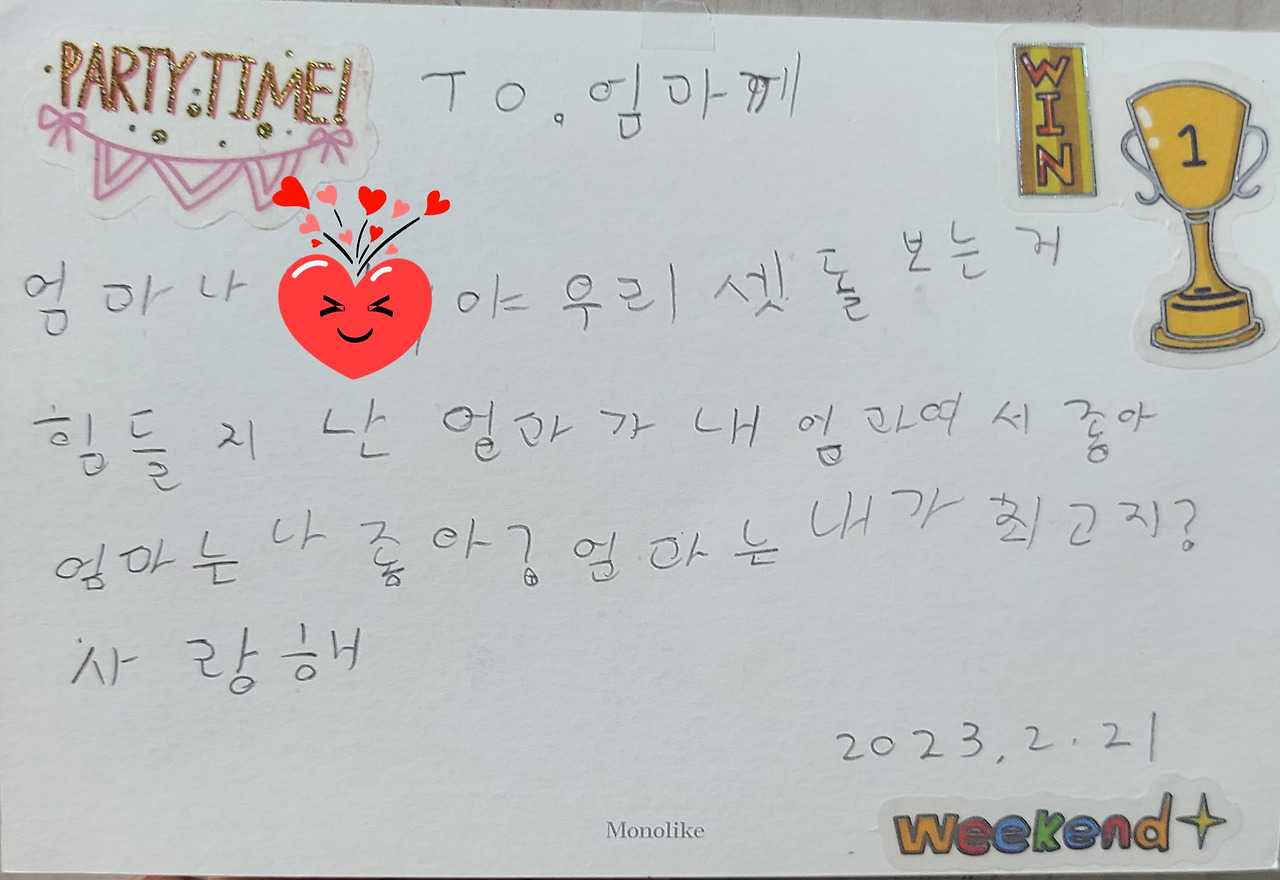 PARTY TIME!
TO. 엄마께
WIN
1
엄마 나 야 우리 셋 돌 보는 거
힘들지 난 엄마가 내 엄마여서 좋아
엄마는 나 좋아? 엄마는 내가 최고지?
사랑해
2023. 2. 21
Monolike
weekend